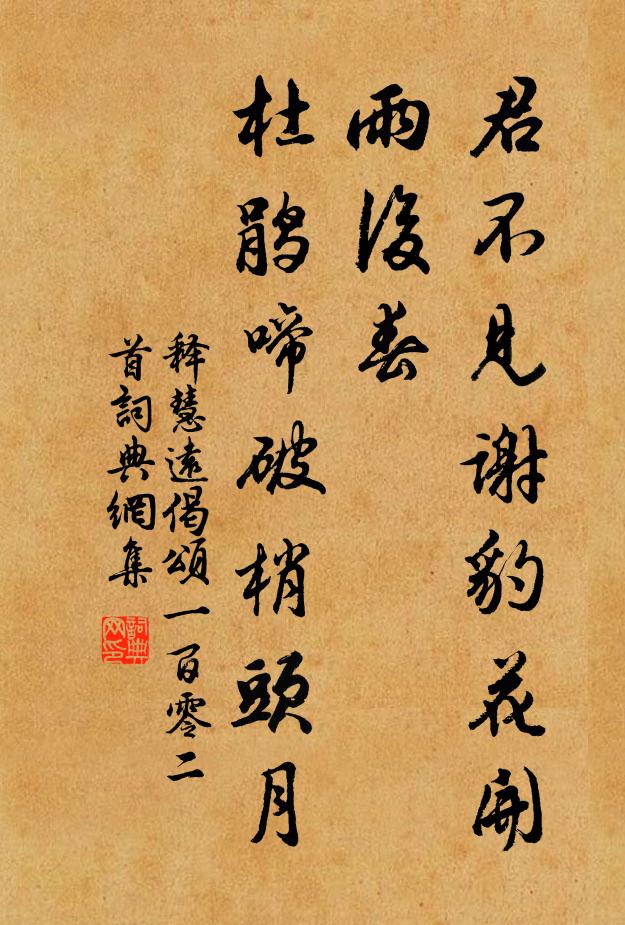 君不見謝豹花開
雨後春
杜鵑啼破梢頭月
释慧遠偈頌一百零二
首詞典網集
詞典
网印